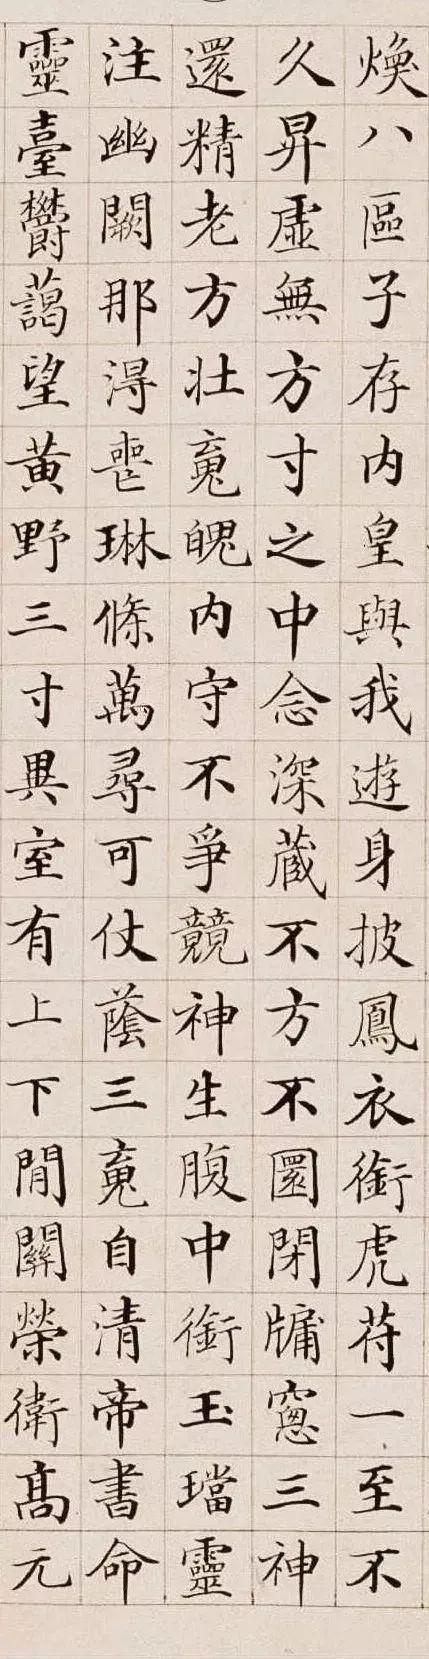 煥八區子存内皇與我遊身披鳳衣銜虎苻一至不
久昇虛無方寸之中念深藏不方不圓閉牖窻三神
還精老方壯䰟魄内守不爭競神生腹中銜玉璫靈
注幽闕那淂喪琳條萬尋可仗蔭三䰟自清帝書命
靈臺鬱藹望黃野三寸異室有上下閒關榮衛髙元